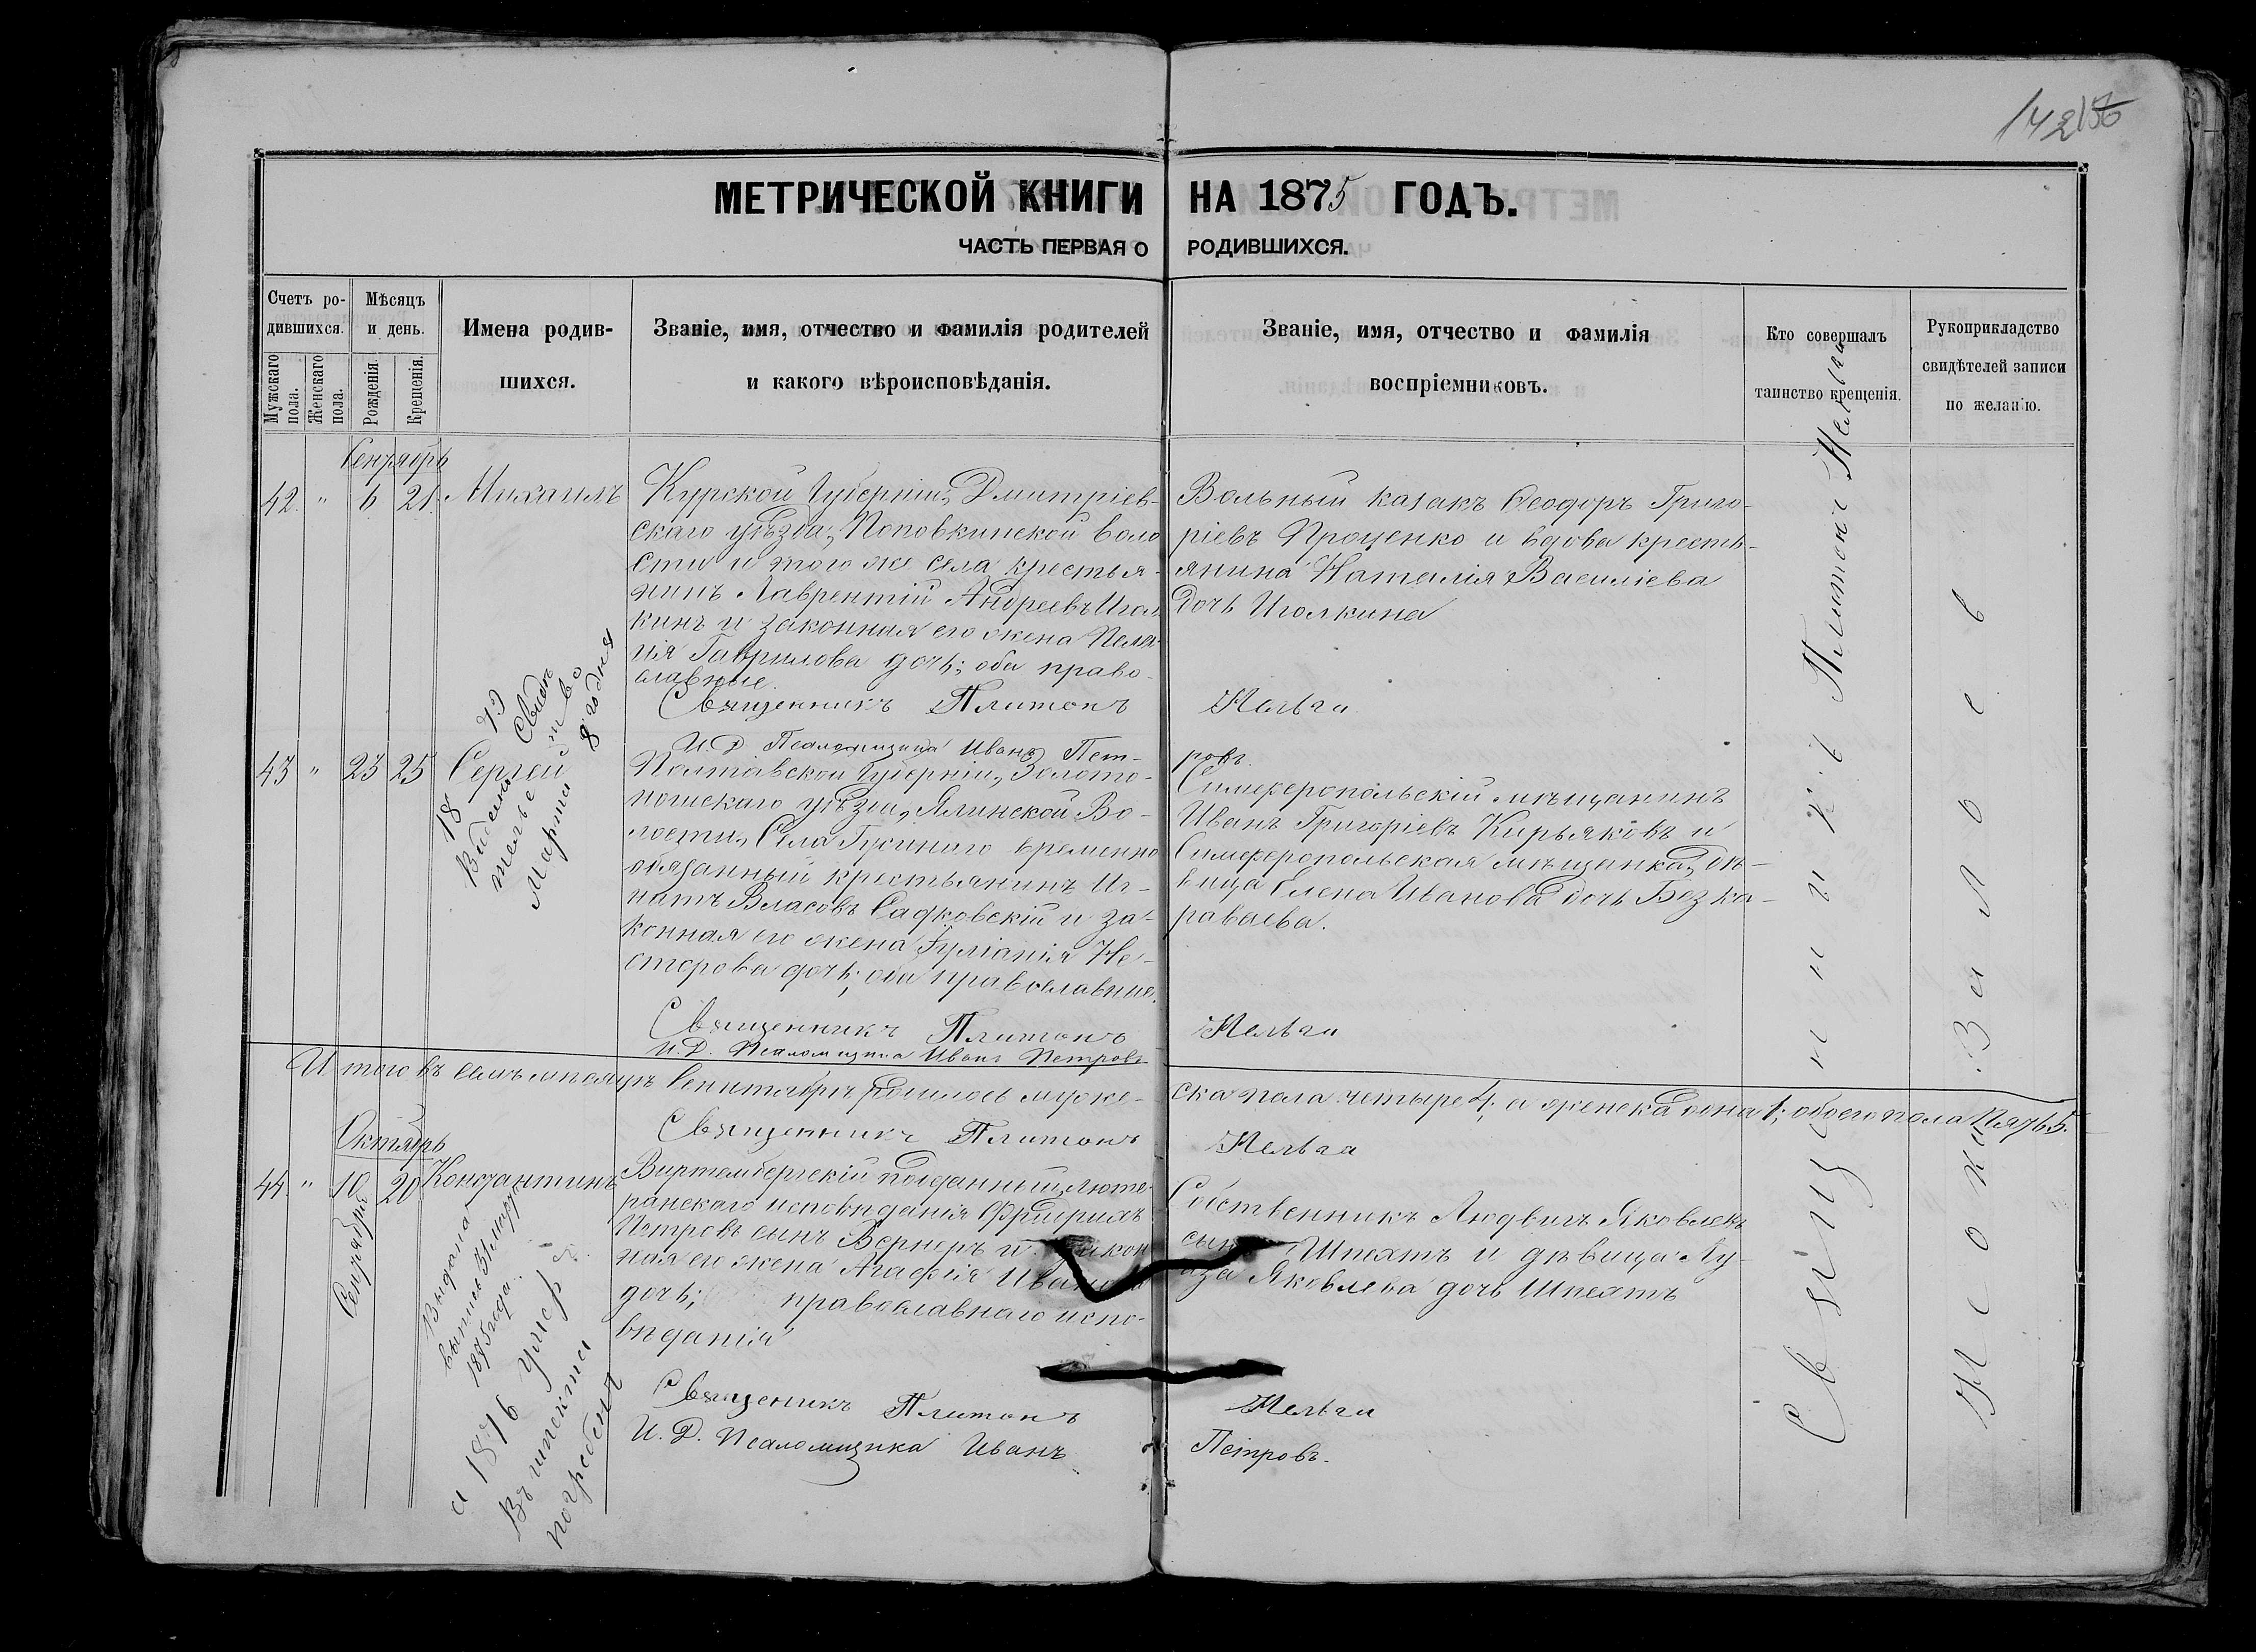 142
МЕТРИЧЕСКОЙ КНИГИ НА 1875 ГОДЪ.
ЧАСТЬ ПЕРВАЯ О РОДИВШИХСЯ.
Счетъ ро-
дившихся.
Мужскаго
пола.
Женскаго
пола.
Мѣсяцъ
и день.
Рожденія.
Крещенія.
Имена родив-
шихся.
Званіе, имя, отчество и фамилія родителей
и какого вѣроисповѣданія.
Званіе, имя, отчество и фамилія
воспріемниковъ.
Кто совершалъ
таинство крещенія.
Рукоприкладство
свидѣтелей записи
по желанію.
Сентябрь
42. " 6 21. Михаилъ
Курской Губерніи, Дмитріев-
скаго уѣзда, Поповкинской воло
сти и того же села крестья-
нинъ Лаврентій Андреевъ Игол
кинъ и законная его жена Пела-
гія Гаврилова дочь; оба право-
славные.
Священникъ Платонъ
И. Д. Псаломщика Иванъ Пет-
Вольный казакъ Ѳеодоръ Григо-
ріевъ Проценко и вдова кресть-
янина Наталія Василіева
дочь Иголкина
ровъ.
43 " 23 25 Сергей
18
Марта
Полтавской Губерніи, Золото-
ношскаго уѣзда, Ялинской Во-
лости, Села Гусинаго временно
обязанный крестьянинъ Иг-
натъ Власовъ Садковскій и за-
конная его жена Іуліанія Не-
сторова дочь; оба православные.
Священникъ Платонъ
И. Д. Псаломщика Иванъ Петровъ
Симферопольскій мѣщанинъ
Иванъ Григоріевъ Кирьяковъ и
Симферопольская мѣщанка, дѣ-
вица Елена Иванова дочь Безка-
раваева.
Итого въ семъ мѣсяцѣ Сентябрѣ родилось муже-
ска пола четыре 4; а женска одна 1; обоего пола Пять 5.
Священникъ Платонъ
Октябрь
44. " 10 20 Константинъ
Сентября
Выдана
1875 года.
а 1876 умеръ
погребенъ
Виртембергскій подданный, люте-
ранскаго исповѣданія Фридрихъ
Петровъ сынъ Вернеръ и закон
ная его жена Агафія Иванова
дочь; православнаго испо-
вѣданія
Священникъ Платонъ
И. Д. Псаломщика Иванъ
Петровъ.
Собственникъ Людвигъ Яковлевъ
сынъ Шпехтъ и дѣвица Лу-
иза Яковлева дочь Шпехтъ
Священникъ Платонъ